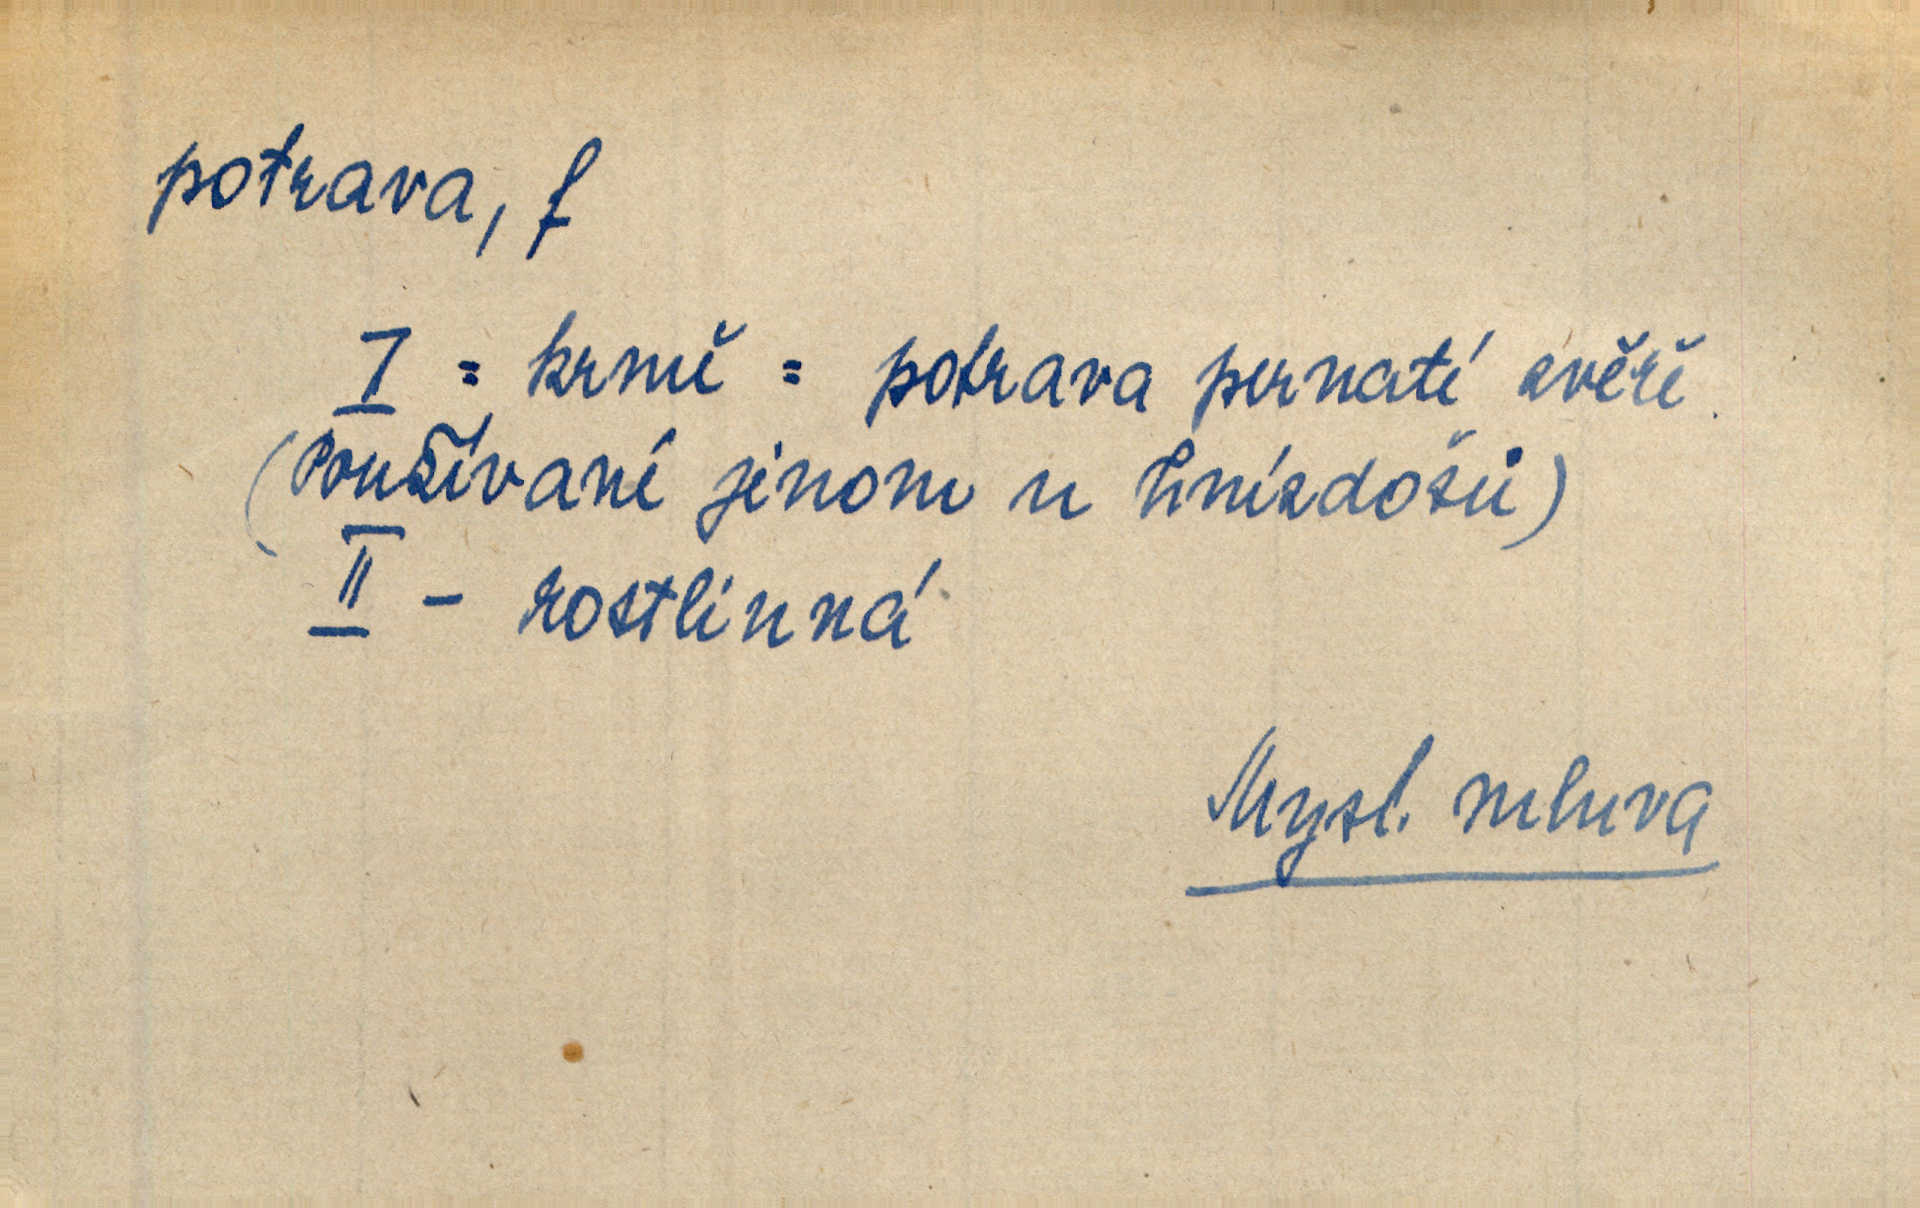 potrava, f
I = krmě = potrava pernaté zvěře
(Používané jenom u hnízdošů)
II - rostlinná
Mysl. mluva